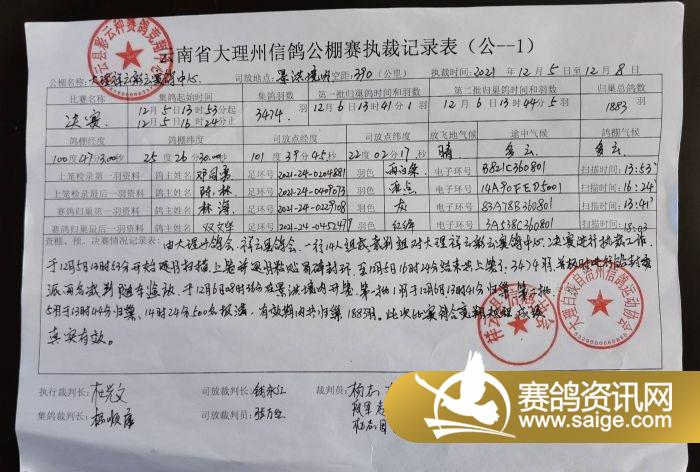 云南省大理州信鸽公棚赛执裁记录表（公--1）
公棚名称:大理祥云彩云赛鸽中心 司放地点:景洪境内 空距:390（公里） 执裁时间:2021年12月5日至12月8日
比赛名称 集鸽起始时间 集鸽羽数 第一批归巢鸽时间和羽数 第二批归巢鸽时间和羽数 归巢总鸽数
决赛 12月5日13时53分起 12月5日16时24分止 3474羽 12月6日13时41分1羽 12月6日13时44分5羽 1883羽
鸽棚经度 鸽棚纬度 司放点经度 司放点纬度 放飞地气候 途中气候 鸽棚气候
100度47分3.00秒 25度26分30.00秒 101度39分45秒 22度02分17秒 晴 多云 多云
上笼检录第一羽资料 鸽主姓名 足环号 2021-24-0204881 羽色 雨白条 电子环号 B821C360801 扫描时间:13:53
上笼检录最后羽资料 鸽主姓名 陈林 足环号 2021-24-0409073 羽色 雨点 电子环号 14A90FE25001 扫描时间:16:24
赛鸽归巢第一羽资料 鸽主姓名 林海 足环号 2021-24-0229108 羽色 灰 电子环号 83A78B360801 扫描时间:13:41
赛鸽归巢最后羽资料 鸽主姓名 双文华 足环号 2021-24-0452479 羽色 红绛 电子环号 3A538C360801 扫描时间:
查棚、预、决赛情况记录:
由大理州鸽会、祥云县鸽会、一行14人组成裁判组对大理祥云彩云赛鸽中心决赛进行执裁工作,
于12月5日13时53分开始逐羽扫描上笼并逐羽粘贴高碎封环,至12月5日16时24分结束共上笼了3474羽,
派两名裁判随车监放,于12月6日08时36分在景洪境内开笼,第一批1羽于12月6日13时41分归巢,第二批
5羽于13时44分归巢,14时24分500名报满,有效期内共归巢1883羽。此次比赛
真实有效。
执行裁判长: 杜光文 司放裁判长: 钱永江 裁判员: 杨志
集鸽裁判长: 杨顺康 司放裁判员:
祥云县信鸽协会
大理白族自治州信鸽运动协会
赛鸽资讯网
www.saige.com